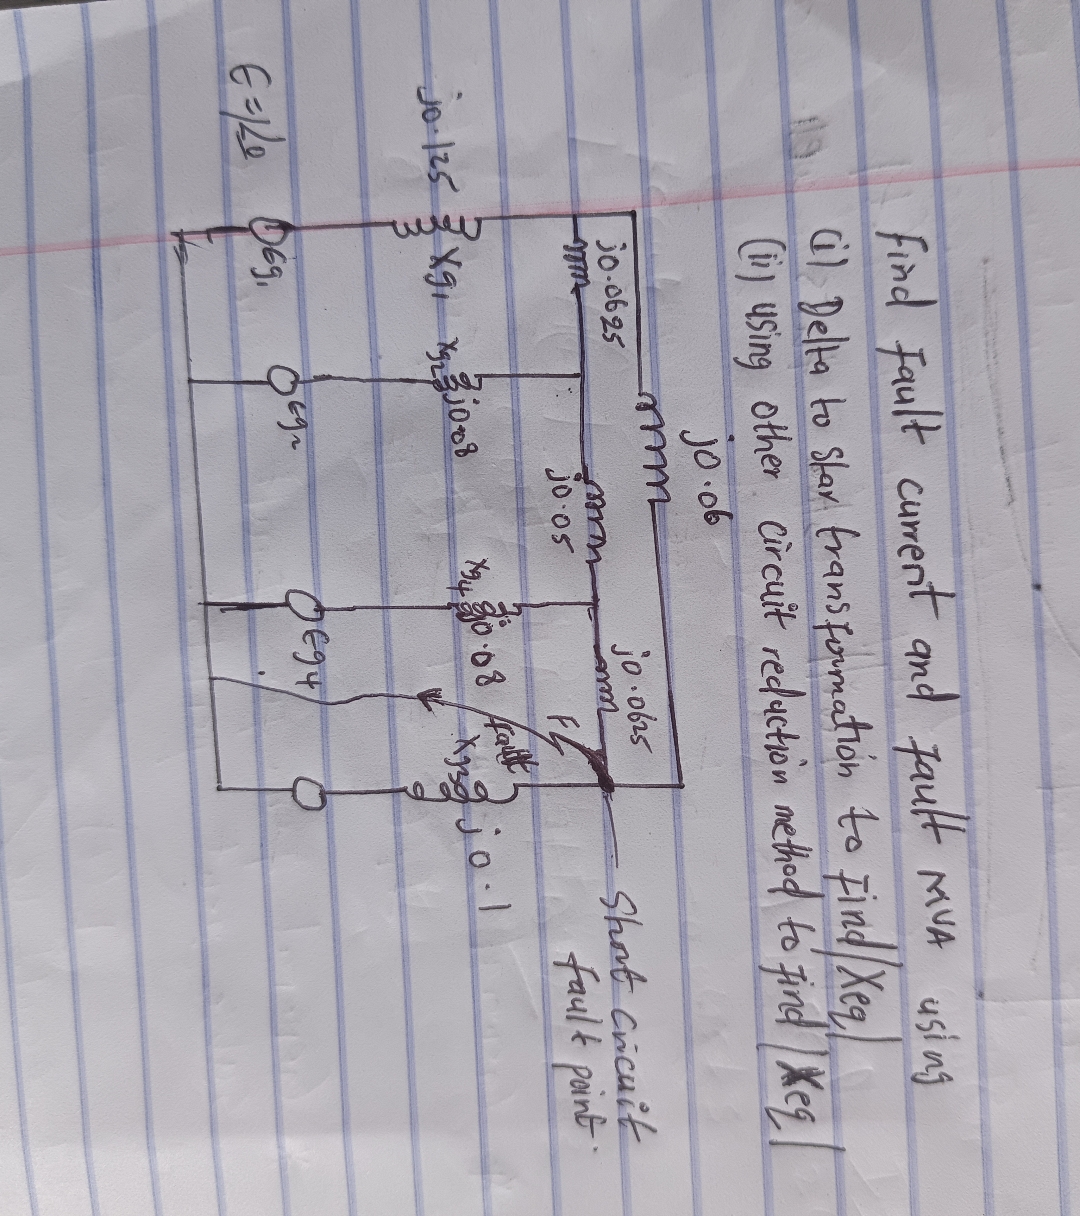 Find Fault current and fault MVA using
(i) Delta to Star transformation to find |Xeq|
(ii) using other circuit reduction method to find |Xeq|
j0.06
j0.0625
j0.05
j0.0625
Short circuit
fault point.
F
fault
j0.125
Xg1
Xg2
j0.08
Xg4
j0.08
Xg3
j0.1
E=1∠0
Eg1
Eg2
Eg4